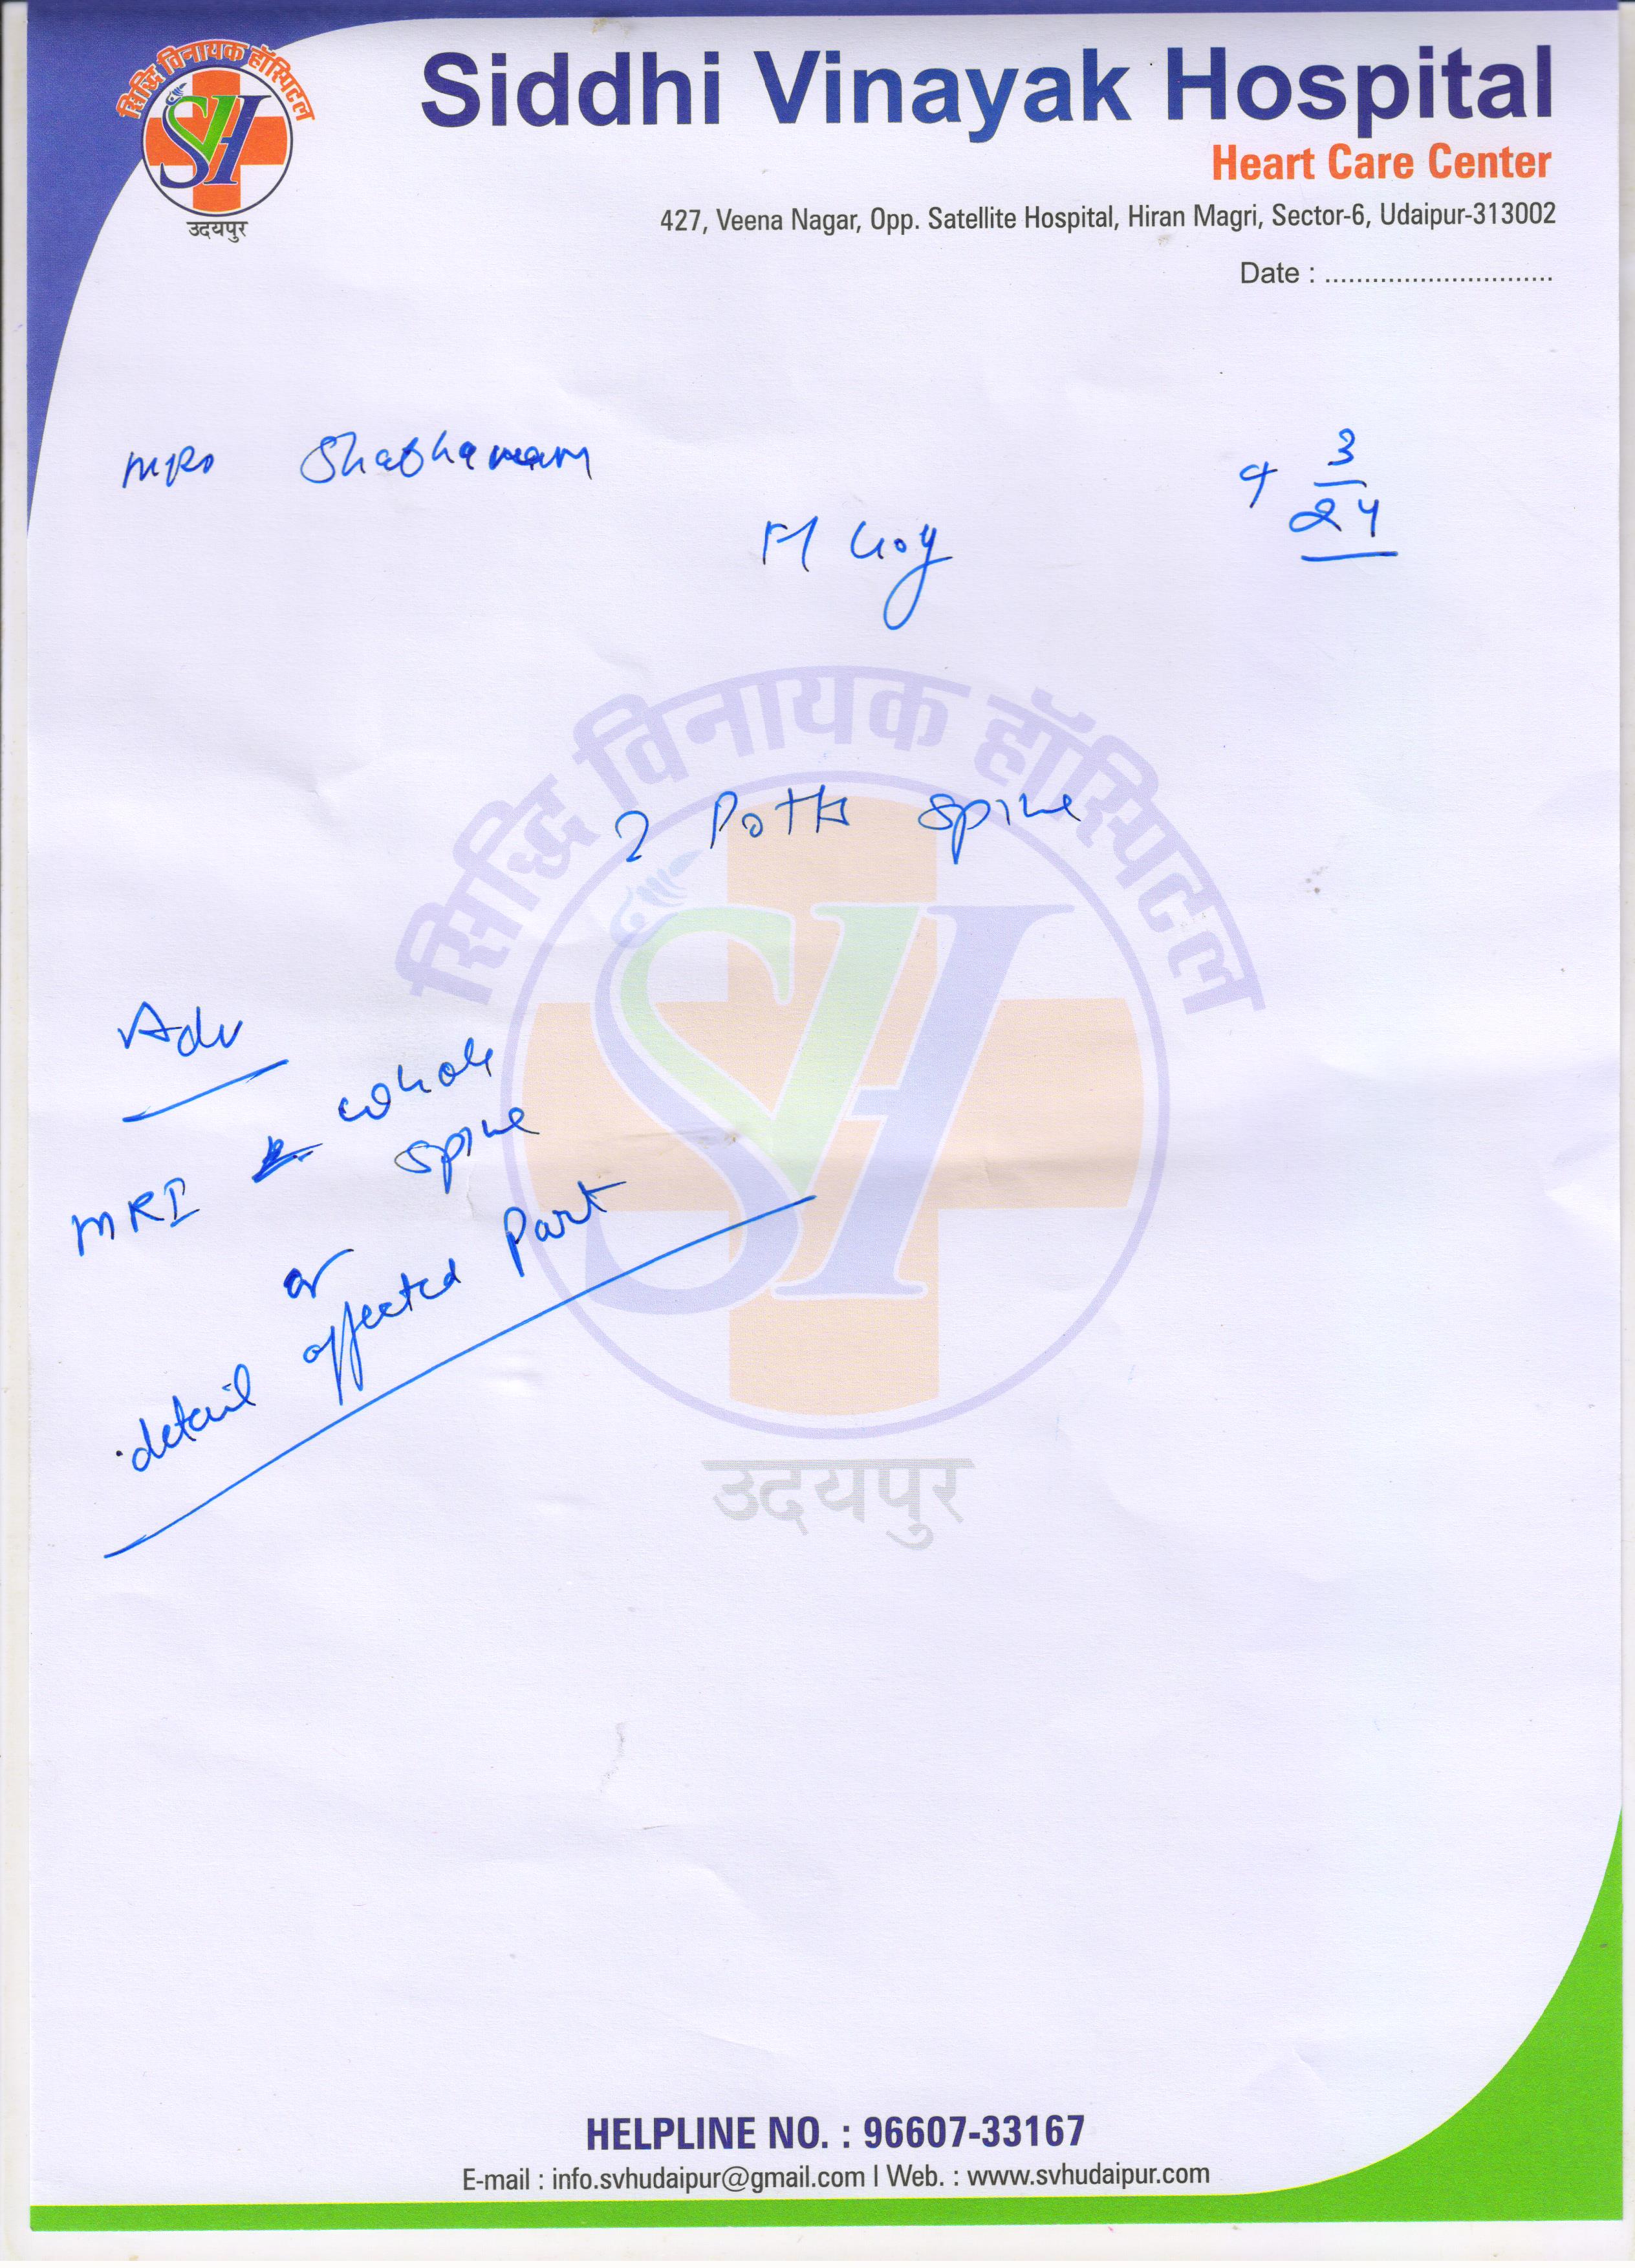 सिद्धि विनायक हॉस्पिटल
SVH
उदयपुर
Siddhi Vinayak Hospital
Heart Care Center
427, Veena Nagar, Opp. Satellite Hospital, Hiran Magri, Sector-6, Udaipur-313002
Date : ............................
Mrs
3
24
सिद्धि विनायक हॉस्पिटल
? Potts spine
SVH
Adv
MRI whole
spine
or
detail affected Part
उदयपुर
HELPLINE NO. : 96607-33167
E-mail : info.svhudaipur@gmail.com I Web. : www.svhudaipur.com